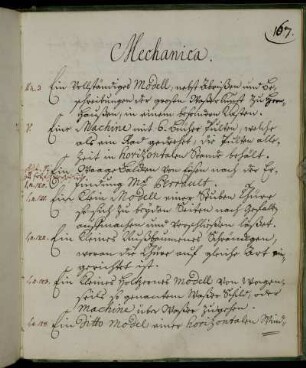 167.
Mechanica.
Ein Vollständiges Modell, nebst Abrüßen und Be-
schreibungen der großen Waßer Kunst zu Herrn-
Haußen, in einem besondern Kasten.
V. Eine Machine mit 6. Bücher Pulten, welche
als ein Rad gedrehet, die Pulten alle-
Zeit in horizontalem Stande behält.
Ein Waage Balken von Eisen nach der Er-
findung Mr Perrault.
Ein klein Modell einer Stuben Thüre
so sich zu beyden Seiten nach Gefallen
auffmachen und verschließen läßet.
Ein kleines Schränckgen,
woran die Thüre auf gleiche Art ein-
gerichtet ist.
Ein kleines höltzernes Modell von
seils so genannten Waßer Schild, oder
Machine über Waßer zugehen.
Ein Ditto Model einer horizontalen Wind-